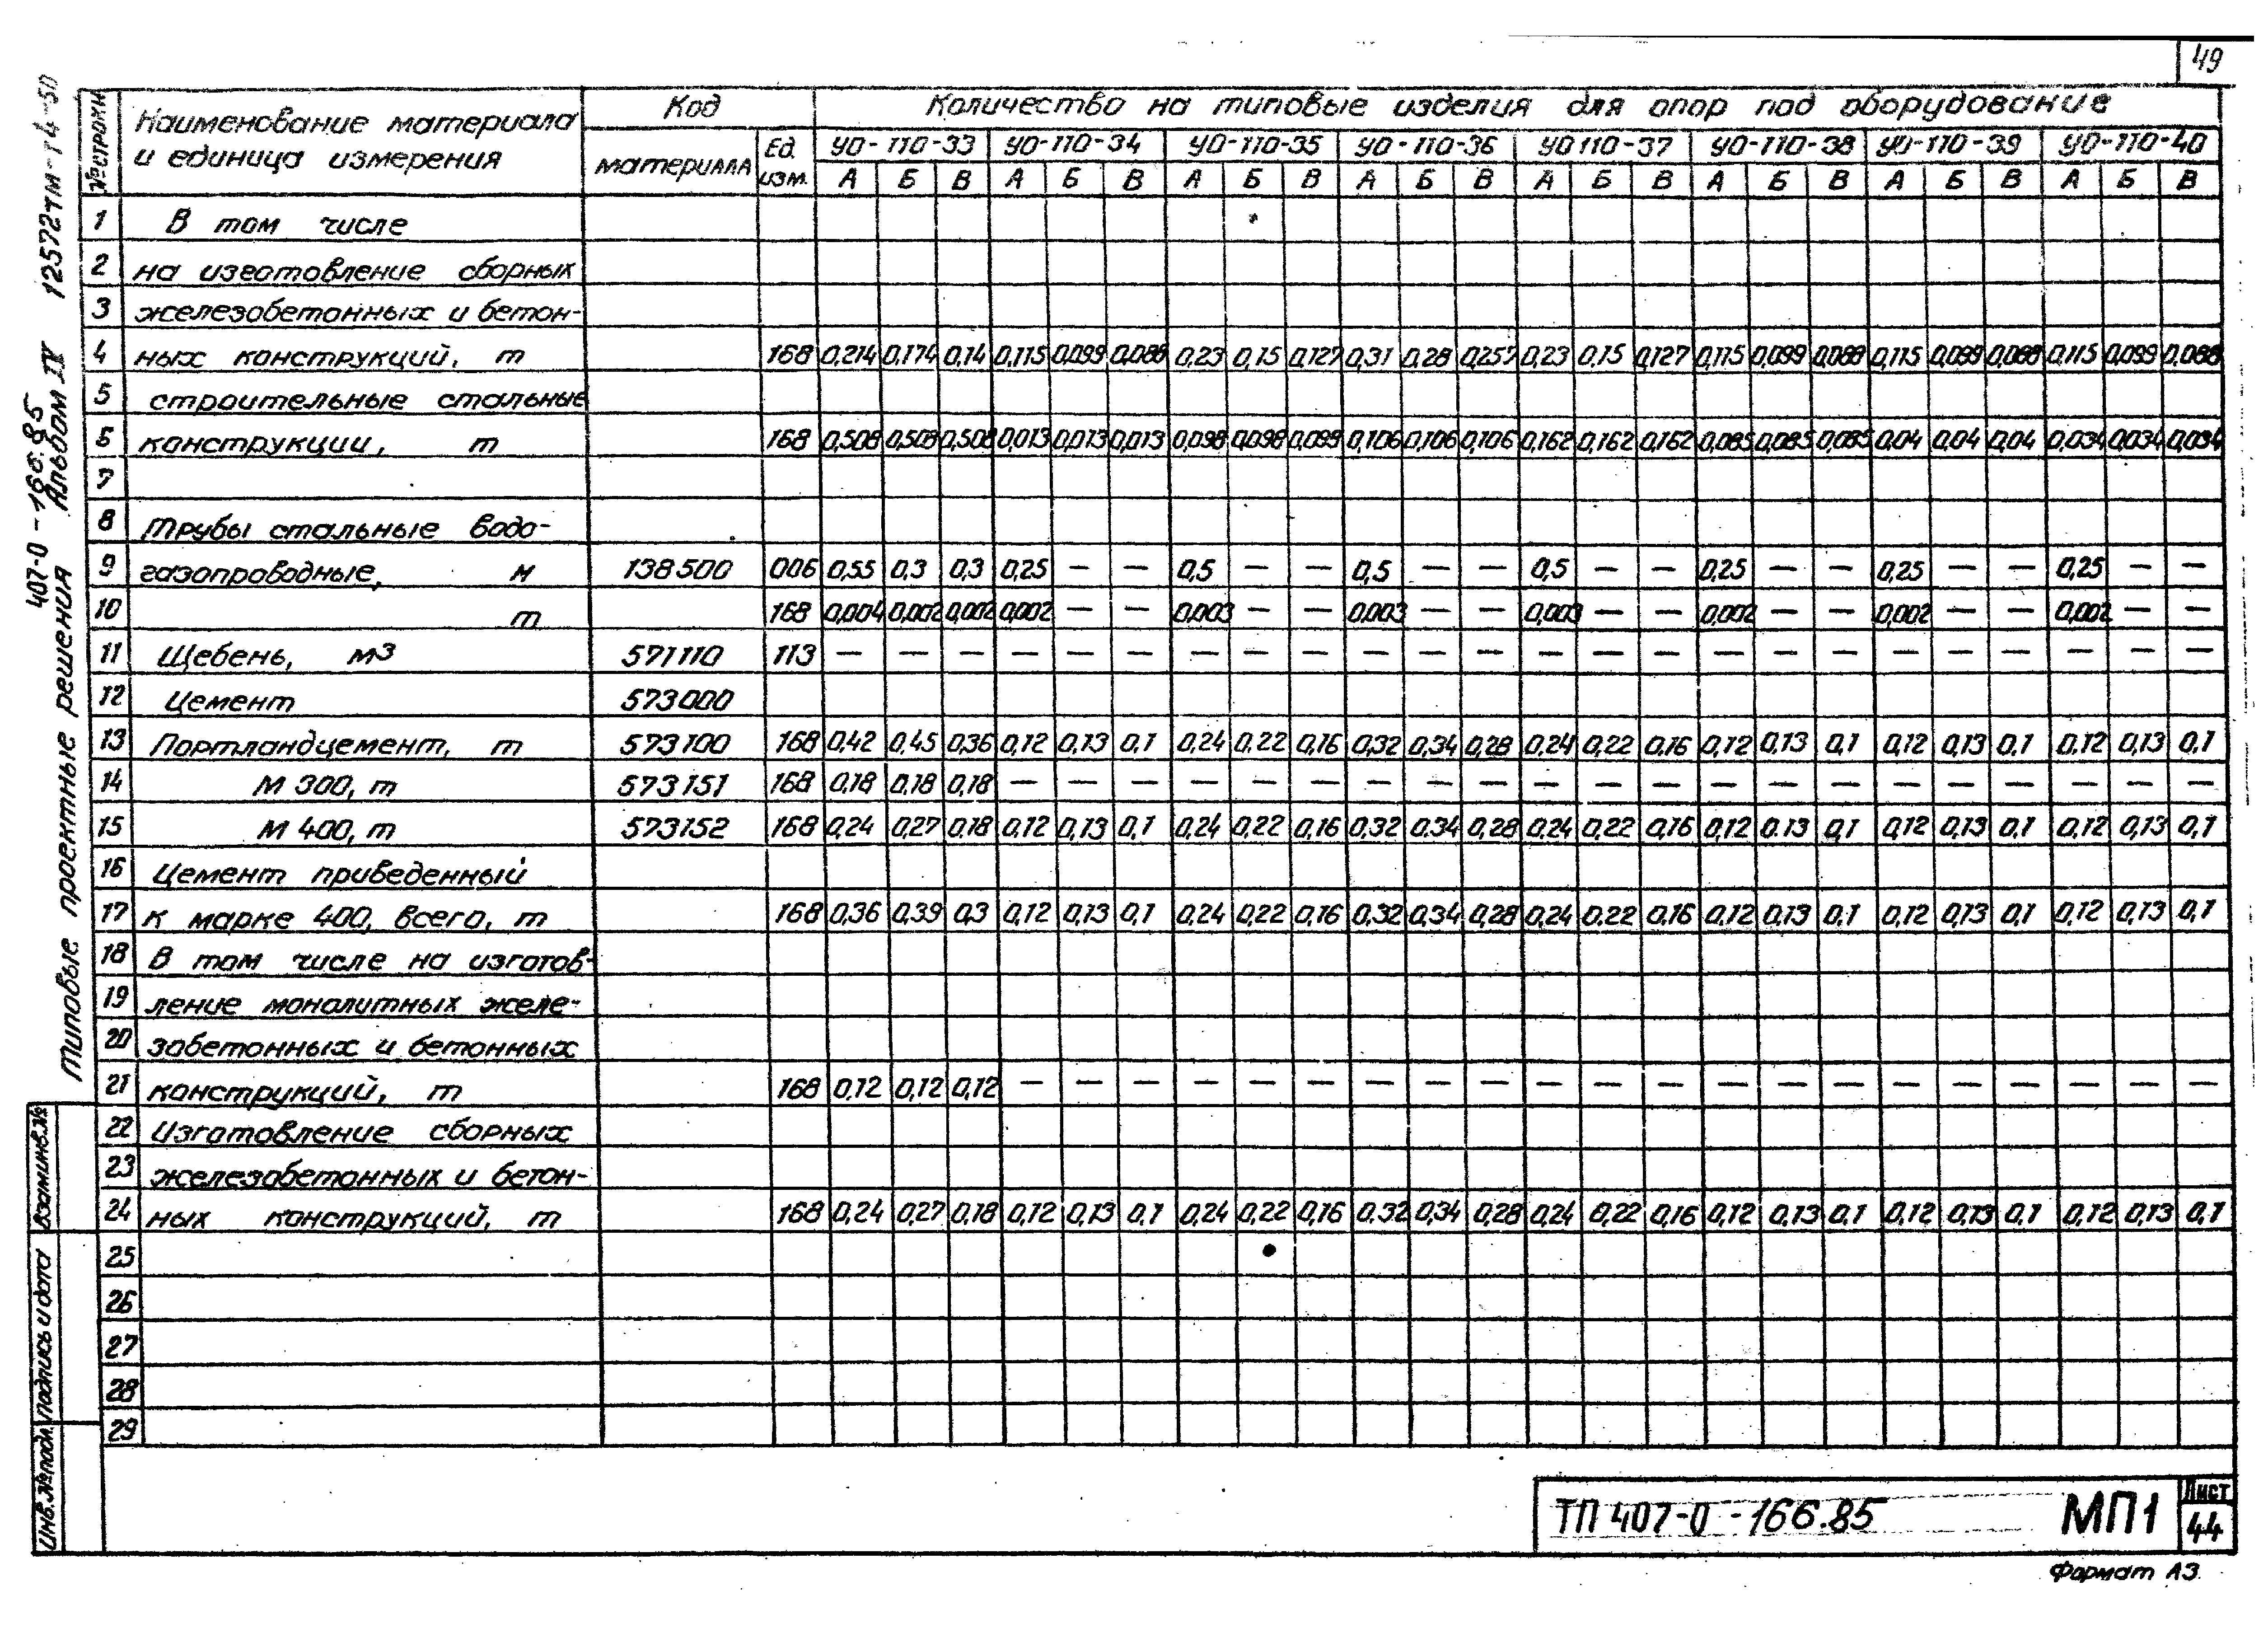 49
№ строки Наименование материала и единица измерения Код Количество на типовые изделия для опор под оборудование
материала Ед. изм. УО-110-33 УО-110-34 УО-110-35 УО-110-36 УО 110-37 УО-110-38 УО-110-39 УО-110-40
А Б В А Б В А Б В А Б В А Б В А Б В А Б В А Б В
1 В том числе
2 на изготовление сборных
3 железобетонных и бетон-
4 ных конструкций, т 168 0,214 0,174 0,14 0,115 0,099 0,088 0,23 0,15 0,127 0,31 0,28 0,257 0,23 0,15 0,127 0,115 0,099 0,088 0,115 0,099 0,088 0,115 0,099 0,088
5 строительные стальные
6 конструкции, т 168 0,508 0,508 0,508 0,013 0,013 0,013 0,098 0,098 0,099 0,106 0,106 0,106 0,162 0,162 0,162 0,085 0,085 0,085 0,04 0,04 0,04 0,034 0,034 0,034
7
8 Трубы стальные водо-
9 газопроводные, м 138500 006 0,55 0,3 0,3 0,25 — — 0,5 — — 0,5 — — 0,5 — — 0,25 — — 0,25 — — 0,25 — —
10 т 168 0,004 0,002 0,002 0,002 — — 0,003 — — 0,003 — — 0,003 — — 0,002 — — 0,002 — — 0,002 — —
11 Щебень, м3 571110 113 — — — — — — — — — — — — — — — — — — — — — — — —
12 Цемент 573000
13 Портландцемент, т 573100 168 0,42 0,45 0,36 0,12 0,13 0,1 0,24 0,22 0,16 0,32 0,34 0,28 0,24 0,22 0,16 0,12 0,13 0,1 0,12 0,13 0,1 0,12 0,13 0,1
14 М 300, т 573151 168 0,18 0,18 0,18 — — — — — — — — — — — — — — — — — — — — —
15 М 400, т 573152 168 0,24 0,27 0,18 0,12 0,13 0,1 0,24 0,22 0,16 0,32 0,34 0,28 0,24 0,22 0,16 0,12 0,13 0,1 0,12 0,13 0,1 0,12 0,13 0,1
16 Цемент приведенный
17 к марке 400, всего, т 168 0,36 0,39 0,3 0,12 0,13 0,1 0,24 0,22 0,16 0,32 0,34 0,28 0,24 0,22 0,16 0,12 0,13 0,1 0,12 0,13 0,1 0,12 0,13 0,1
18 В том числе на изготов-
19 ление монолитных желе-
20 забетонных и бетонных
21 конструкций, т 168 0,12 0,12 0,12 — — — — — — — — — — — — — — — — — — — — —
22 Изготовление сборных
23 железобетонных и бетон-
24 ных конструкций, т 168 0,24 0,27 0,18 0,12 0,13 0,1 0,24 0,22 0,16 0,32 0,34 0,28 0,24 0,22 0,16 0,12 0,13 0,1 0,12 0,13 0,1 0,12 0,13 0,1
25
26
27
28
29
407-0-166.85
Типовые проектные решения Альбом IV 12572тм-т4-50
Взам.инв.№
Подпись и дата
Инв.№подл.
ТП 407-0-166.85 МП1
Лист
44
Формат А3